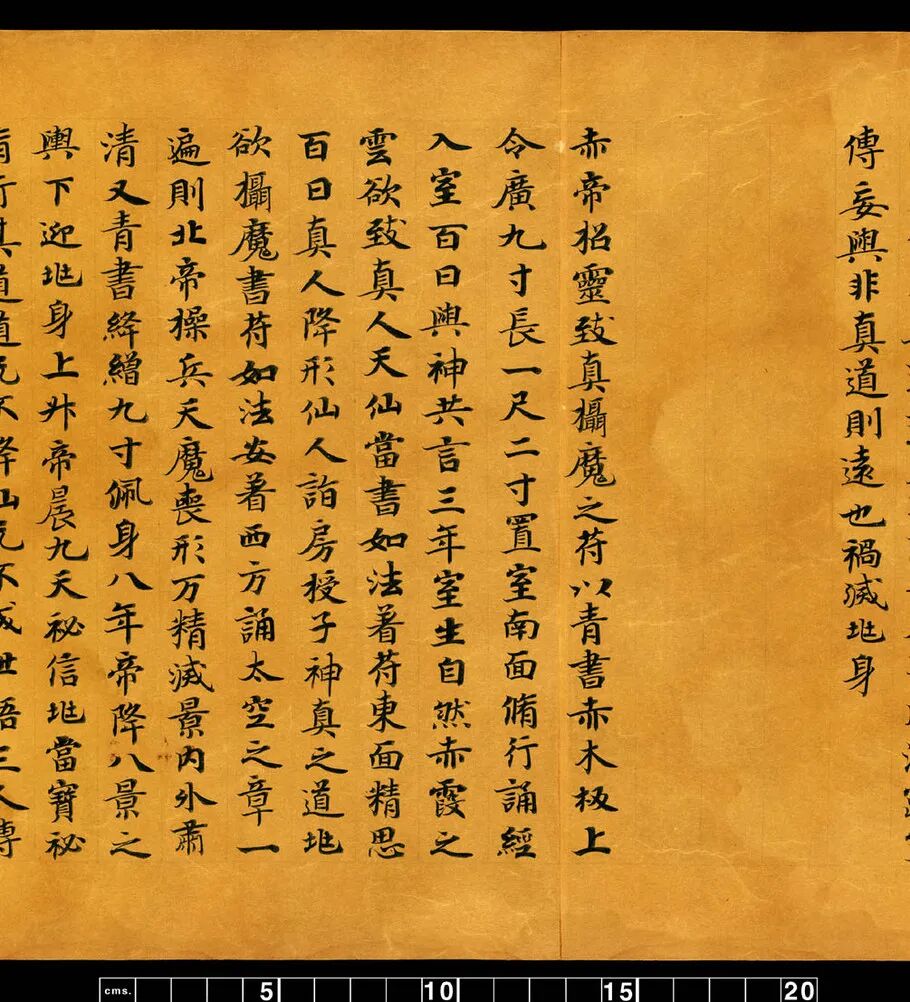 傳妄與非真道則遠也禍滅兆身
赤帝招靈致真攝魔之苻以青書赤木板上
令廣九寸長一尺二寸置室南面脩行誦經
入室百日與神共言三年室生自然赤霞之
雲欲致真人天仙當書如法着苻東面精思
百日真人降形仙人詣房授子神真之道兆
欲攝魔書苻如法安着西方誦太空之章一
遍則北帝操兵天魔喪形万精滅景内外肅
清又青書絳繒九寸佩身八年帝降八景之
輿下迎兆身上升帝晨九天祕信兆當寶祕
cms. 5 10 15 20